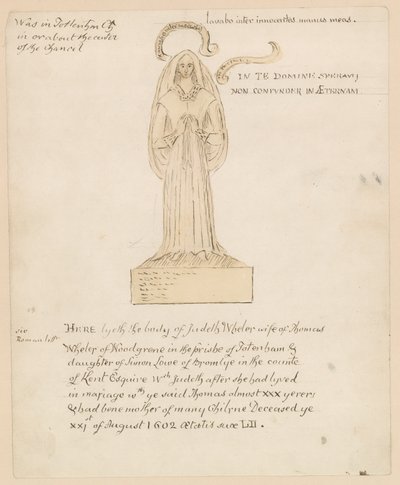 Was in Tottenhm Ch
in or about the center
of the Chancel
lavabo inter innocentes manus meas.
IN TE DOMINE SPERAVIJ
NON CONFUNDER IN ÆTERNAM
sic
Roman lettr
HERE lyeth the body of Judeth Wheler wife of Thomas
Wheler of Woodgrene in the prishe of Totenham &
daughter of Simon Lowe of Bromlye in the counte
of Kent Esquire Wch Judeth after she had lyved
in mariage wth ye said Thomas almost XXX yeres
& had bene mother of many Chilrne Deceased ye
XXIst of August 1602 Ætatis suæ LII.